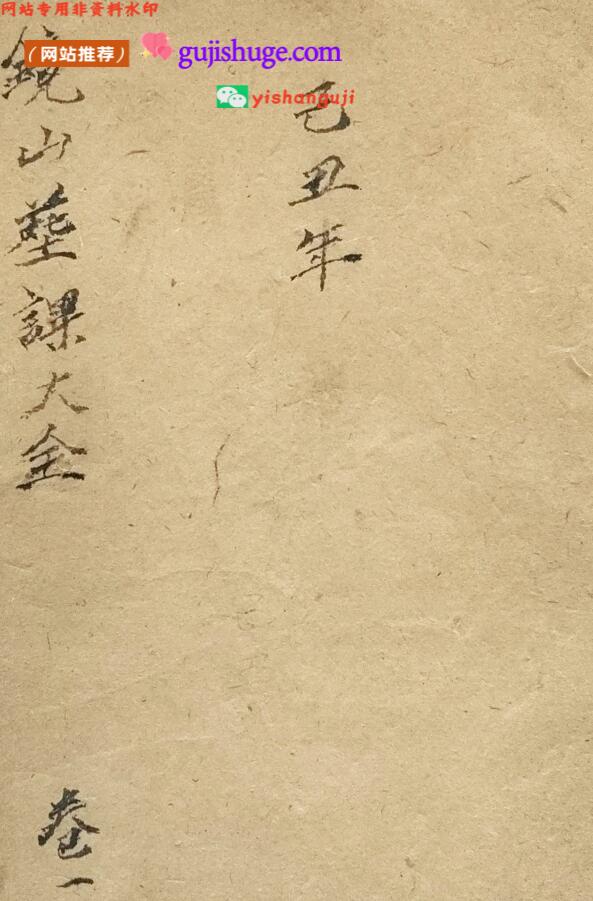 网站专用非资料水印
(网站推荐) gujishuge.com
yishanguji
己丑年
鏡山塟課大全
卷一